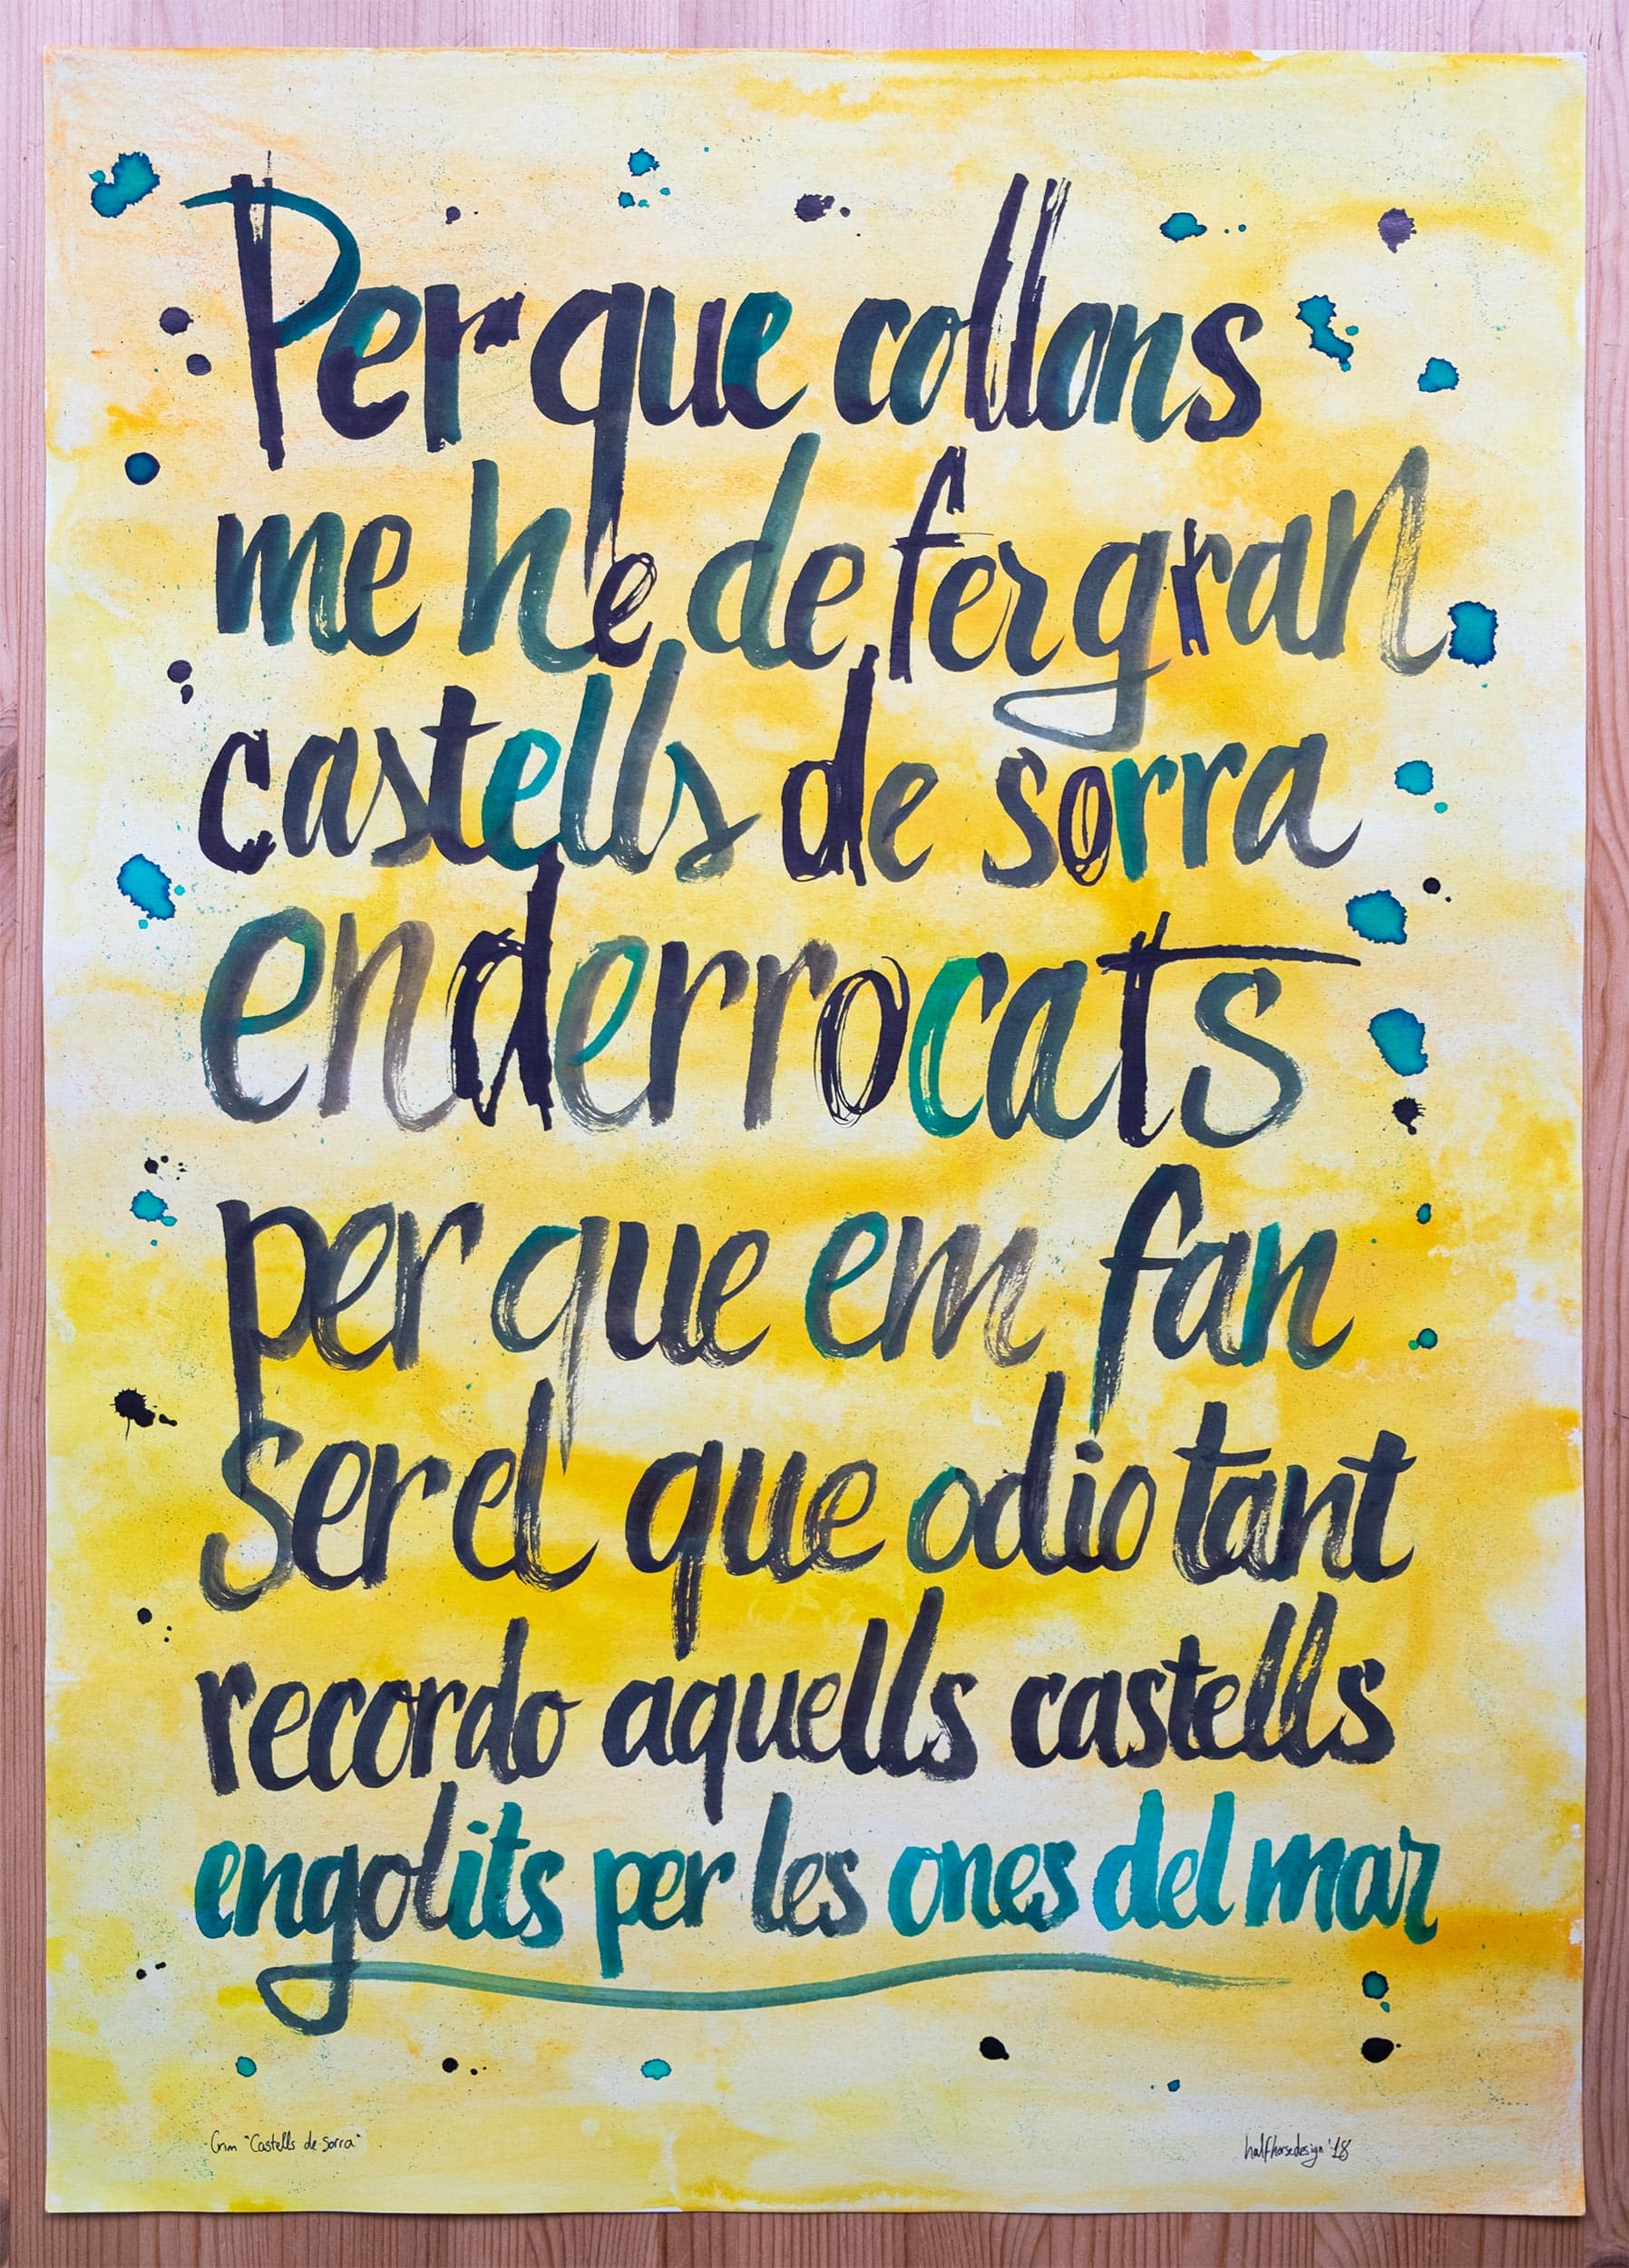 Per que collons
me he de fer gran
castells de sorra
enderrocats
per que em fan
ser el que odio tant
recordo aquells castells
engolits per les ones del mar
"Castells de sorra"
halfhorsedesign '18